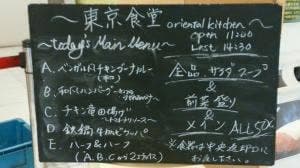 ～東京食堂～
oriental kitchen
open 11:00
Last 14:30
～today's Main Menu～
A. ベンガルチキンゴーナカレー
B. 和風ハンバーグ
C. チキン竜田揚げ
トマトソース
D. 鉄鍋
E. ハーフ&ハーフ
(A.B.Cから2コ
全品 サラダ スープ
&
前菜盛り
&
メイン ALL 50%
※食器は中央返却口に
お返し下さい。